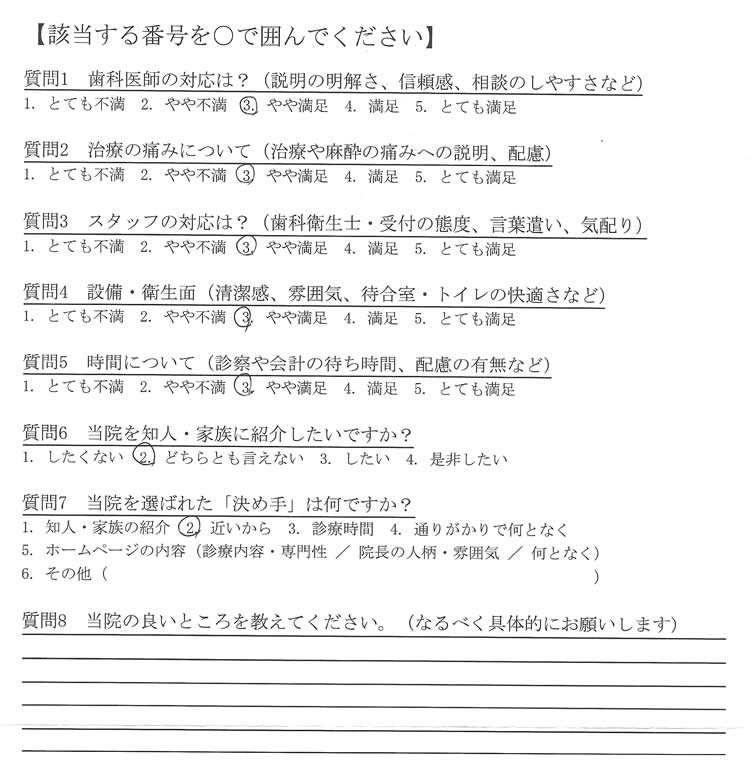 【該当する番号を〇で囲んでください】
質問1　歯科医師の対応は？（説明の明解さ、信頼感、相談のしやすさなど）
1. とても不満　2. やや不満　3. やや満足　4. 満足　5. とても満足
質問2　治療の痛みについて（治療や麻酔の痛みへの説明、配慮）
1. とても不満　2. やや不満　3. やや満足　4. 満足　5. とても満足
質問3　スタッフの対応は？（歯科衛生士・受付の態度、言葉遣い、気配り）
1. とても不満　2. やや不満　3. やや満足　4. 満足　5. とても満足
質問4　設備・衛生面（清潔感、雰囲気、待合室・トイレの快適さなど）
1. とても不満　2. やや不満　3. やや満足　4. 満足　5. とても満足
質問5　時間について（診察や会計の待ち時間、配慮の有無など）
1. とても不満　2. やや不満　3. やや満足　4. 満足　5. とても満足
質問6　当院を知人・家族に紹介したいですか？
1. したくない　2. どちらとも言えない　3. したい　4. 是非したい
質問7　当院を選ばれた「決め手」は何ですか？
1. 知人・家族の紹介　2. 近いから　3. 診療時間　4. 通りがかりで何となく
5. ホームページの内容（診療内容・専門性 ／ 院長の人柄・雰囲気 ／ 何となく）
6. その他（　　　　　　　　　　　　　　　　　　　　）
質問8　当院の良いところを教えてください。（なるべく具体的にお願いします）